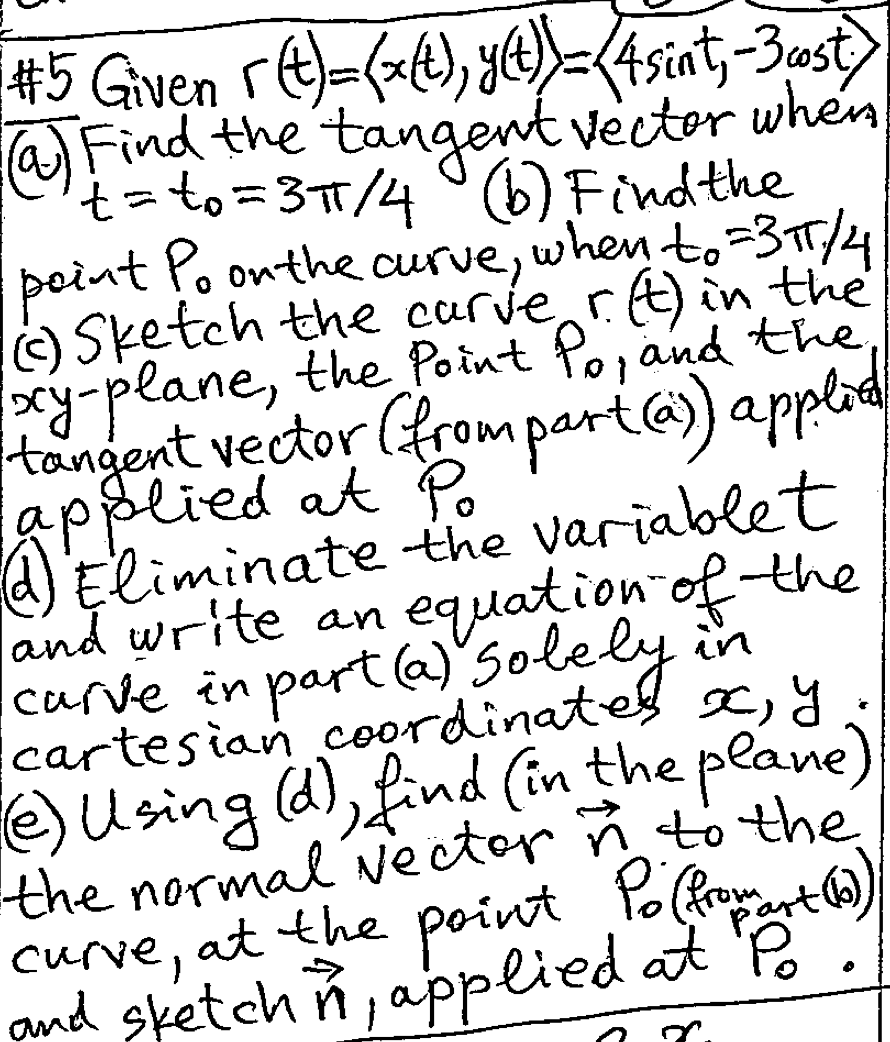 #5 Given r(t)=⟨x(t), y(t)⟩=⟨4sint, -3cost⟩
(a) Find the tangent vector when
t = t₀ = 3π/4 (b) Find the
point P₀ on the curve, when t₀=3π/4
(c) Sketch the curve r(t) in the
xy-plane, the point P₀, and the
tangent vector (from part (a)) applied
applied at P₀
(d) Eliminate the variable t
and write an equation of the
curve in part (a) solely in
cartesian coordinates x, y.
(e) Using (d), find (in the plane)
the normal vector n⃗ to the
curve, at the point P₀ (from part (b))
and sketch n⃗, applied at P₀.